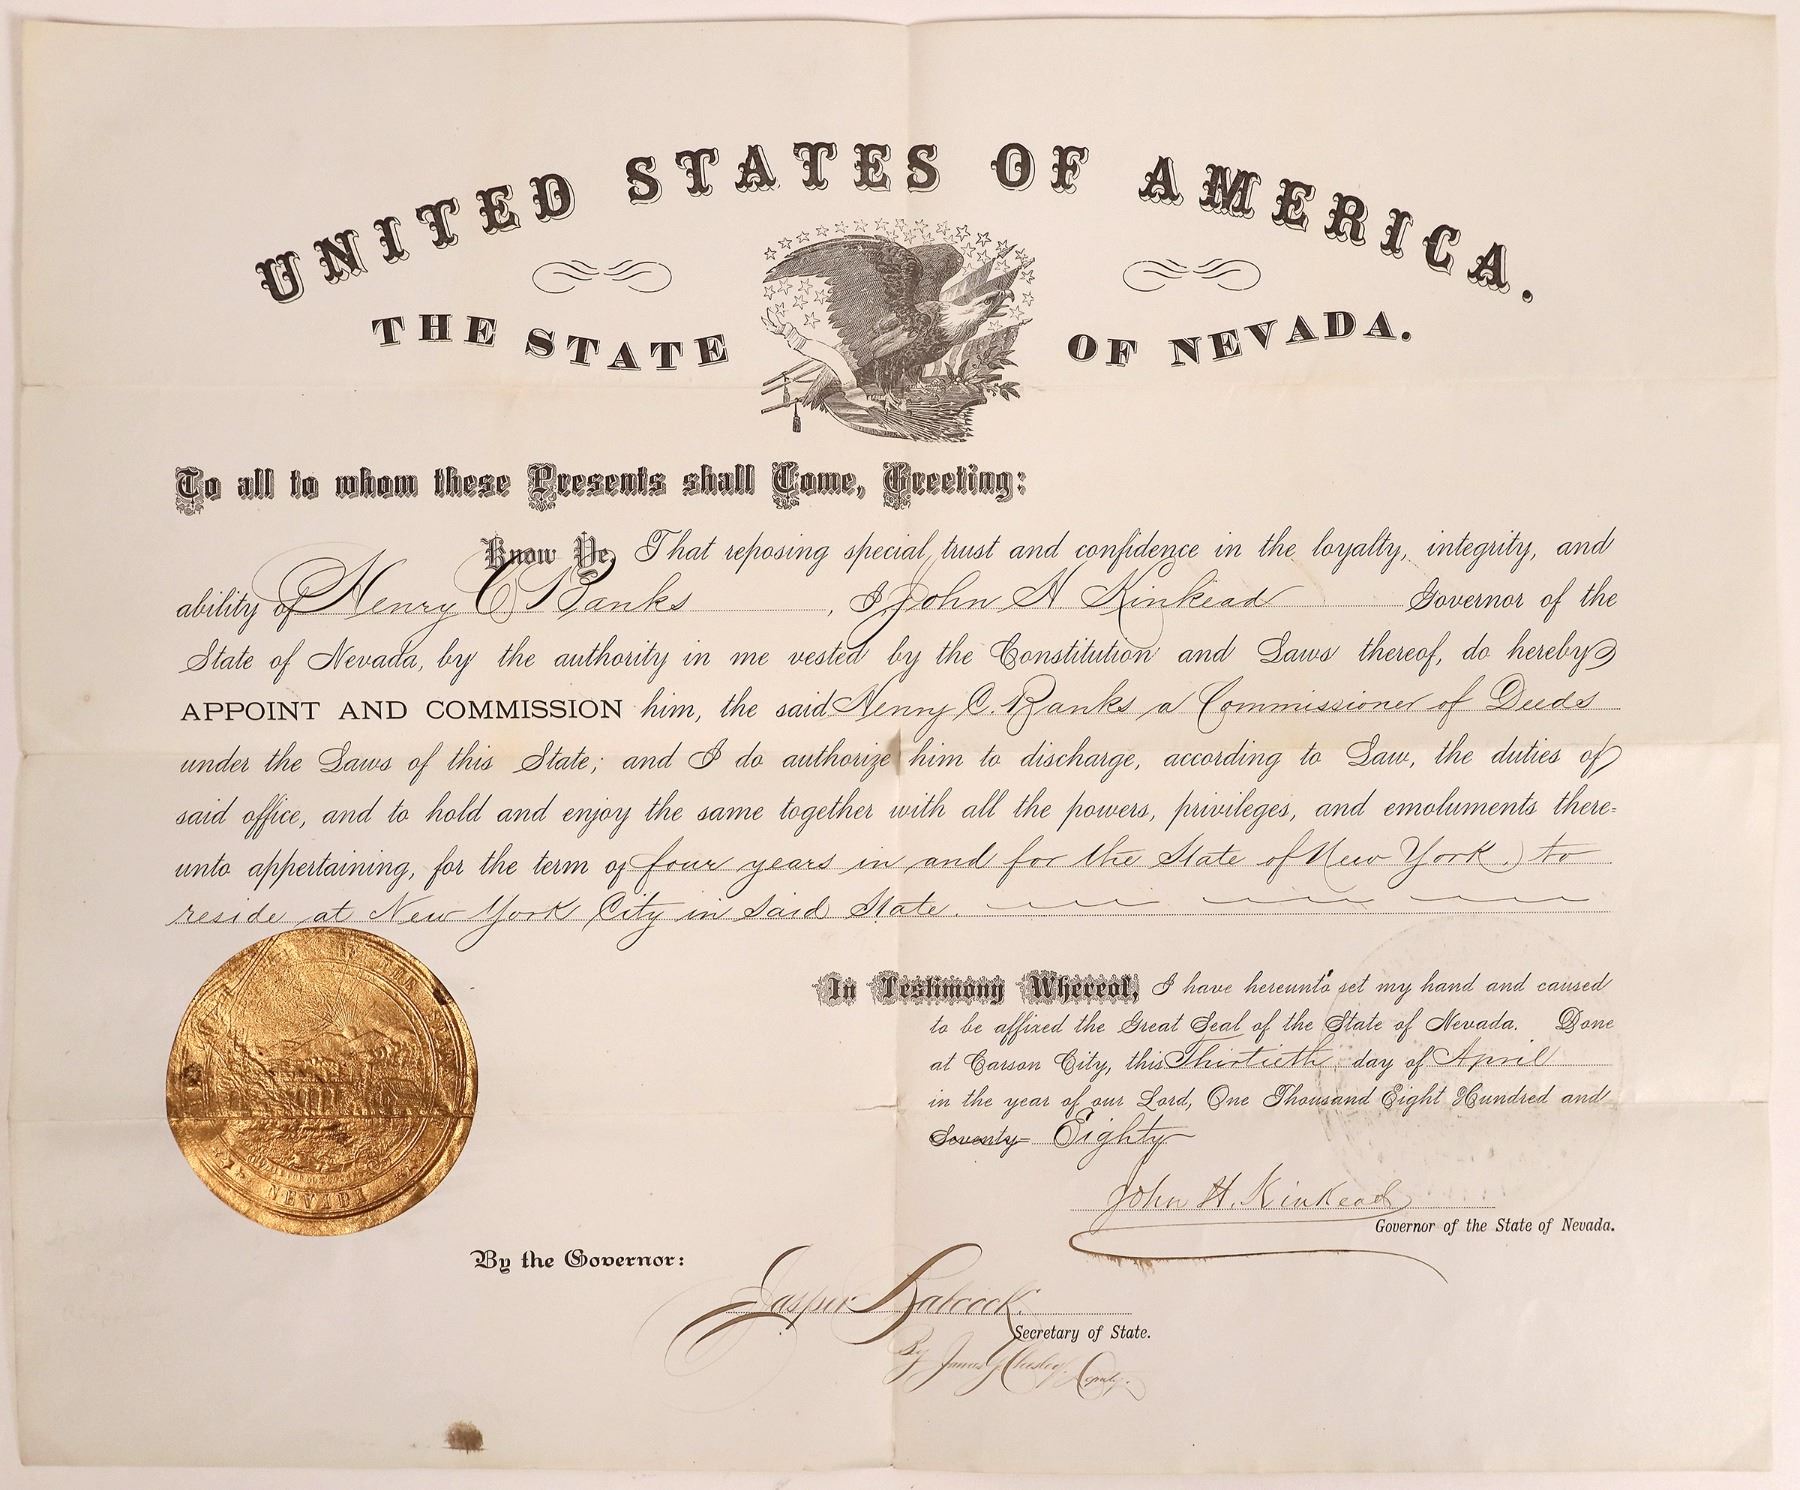 UNITED STATES OF AMERICA.
THE STATE OF NEVADA.
To all to whom these Presents shall Come, Greeting:
Know Ye, That reposing special trust and confidence in the loyalty, integrity, and
ability of Henry C Banks, I John H Kinkead Governor of the
State of Nevada, by the authority in me vested by the Constitution and Laws thereof, do hereby
APPOINT AND COMMISSION him, the said Henry C. Banks a Commissioner of Deeds
under the Laws of this State; and I do authorize him to discharge, according to Law, the duties of
said office, and to hold and enjoy the same together with all the powers, privileges, and emoluments there=
unto appertaining, for the term of four years in and for the State of New York. to
reside at New York City in said State.
In Testimony Whereof, I have hereunto set my hand and caused
to be affixed the Great Seal of the State of Nevada. Done
at Carson City, this Thirtieth day of April
in the year of our Lord, One Thousand Eight Hundred and
Seventy= Eighty
John H. Kinkead
Governor of the State of Nevada.
By the Governor:
Jasper Babcock.
Secretary of State.
By James Deputy.
OF THE STATE
NEVADA